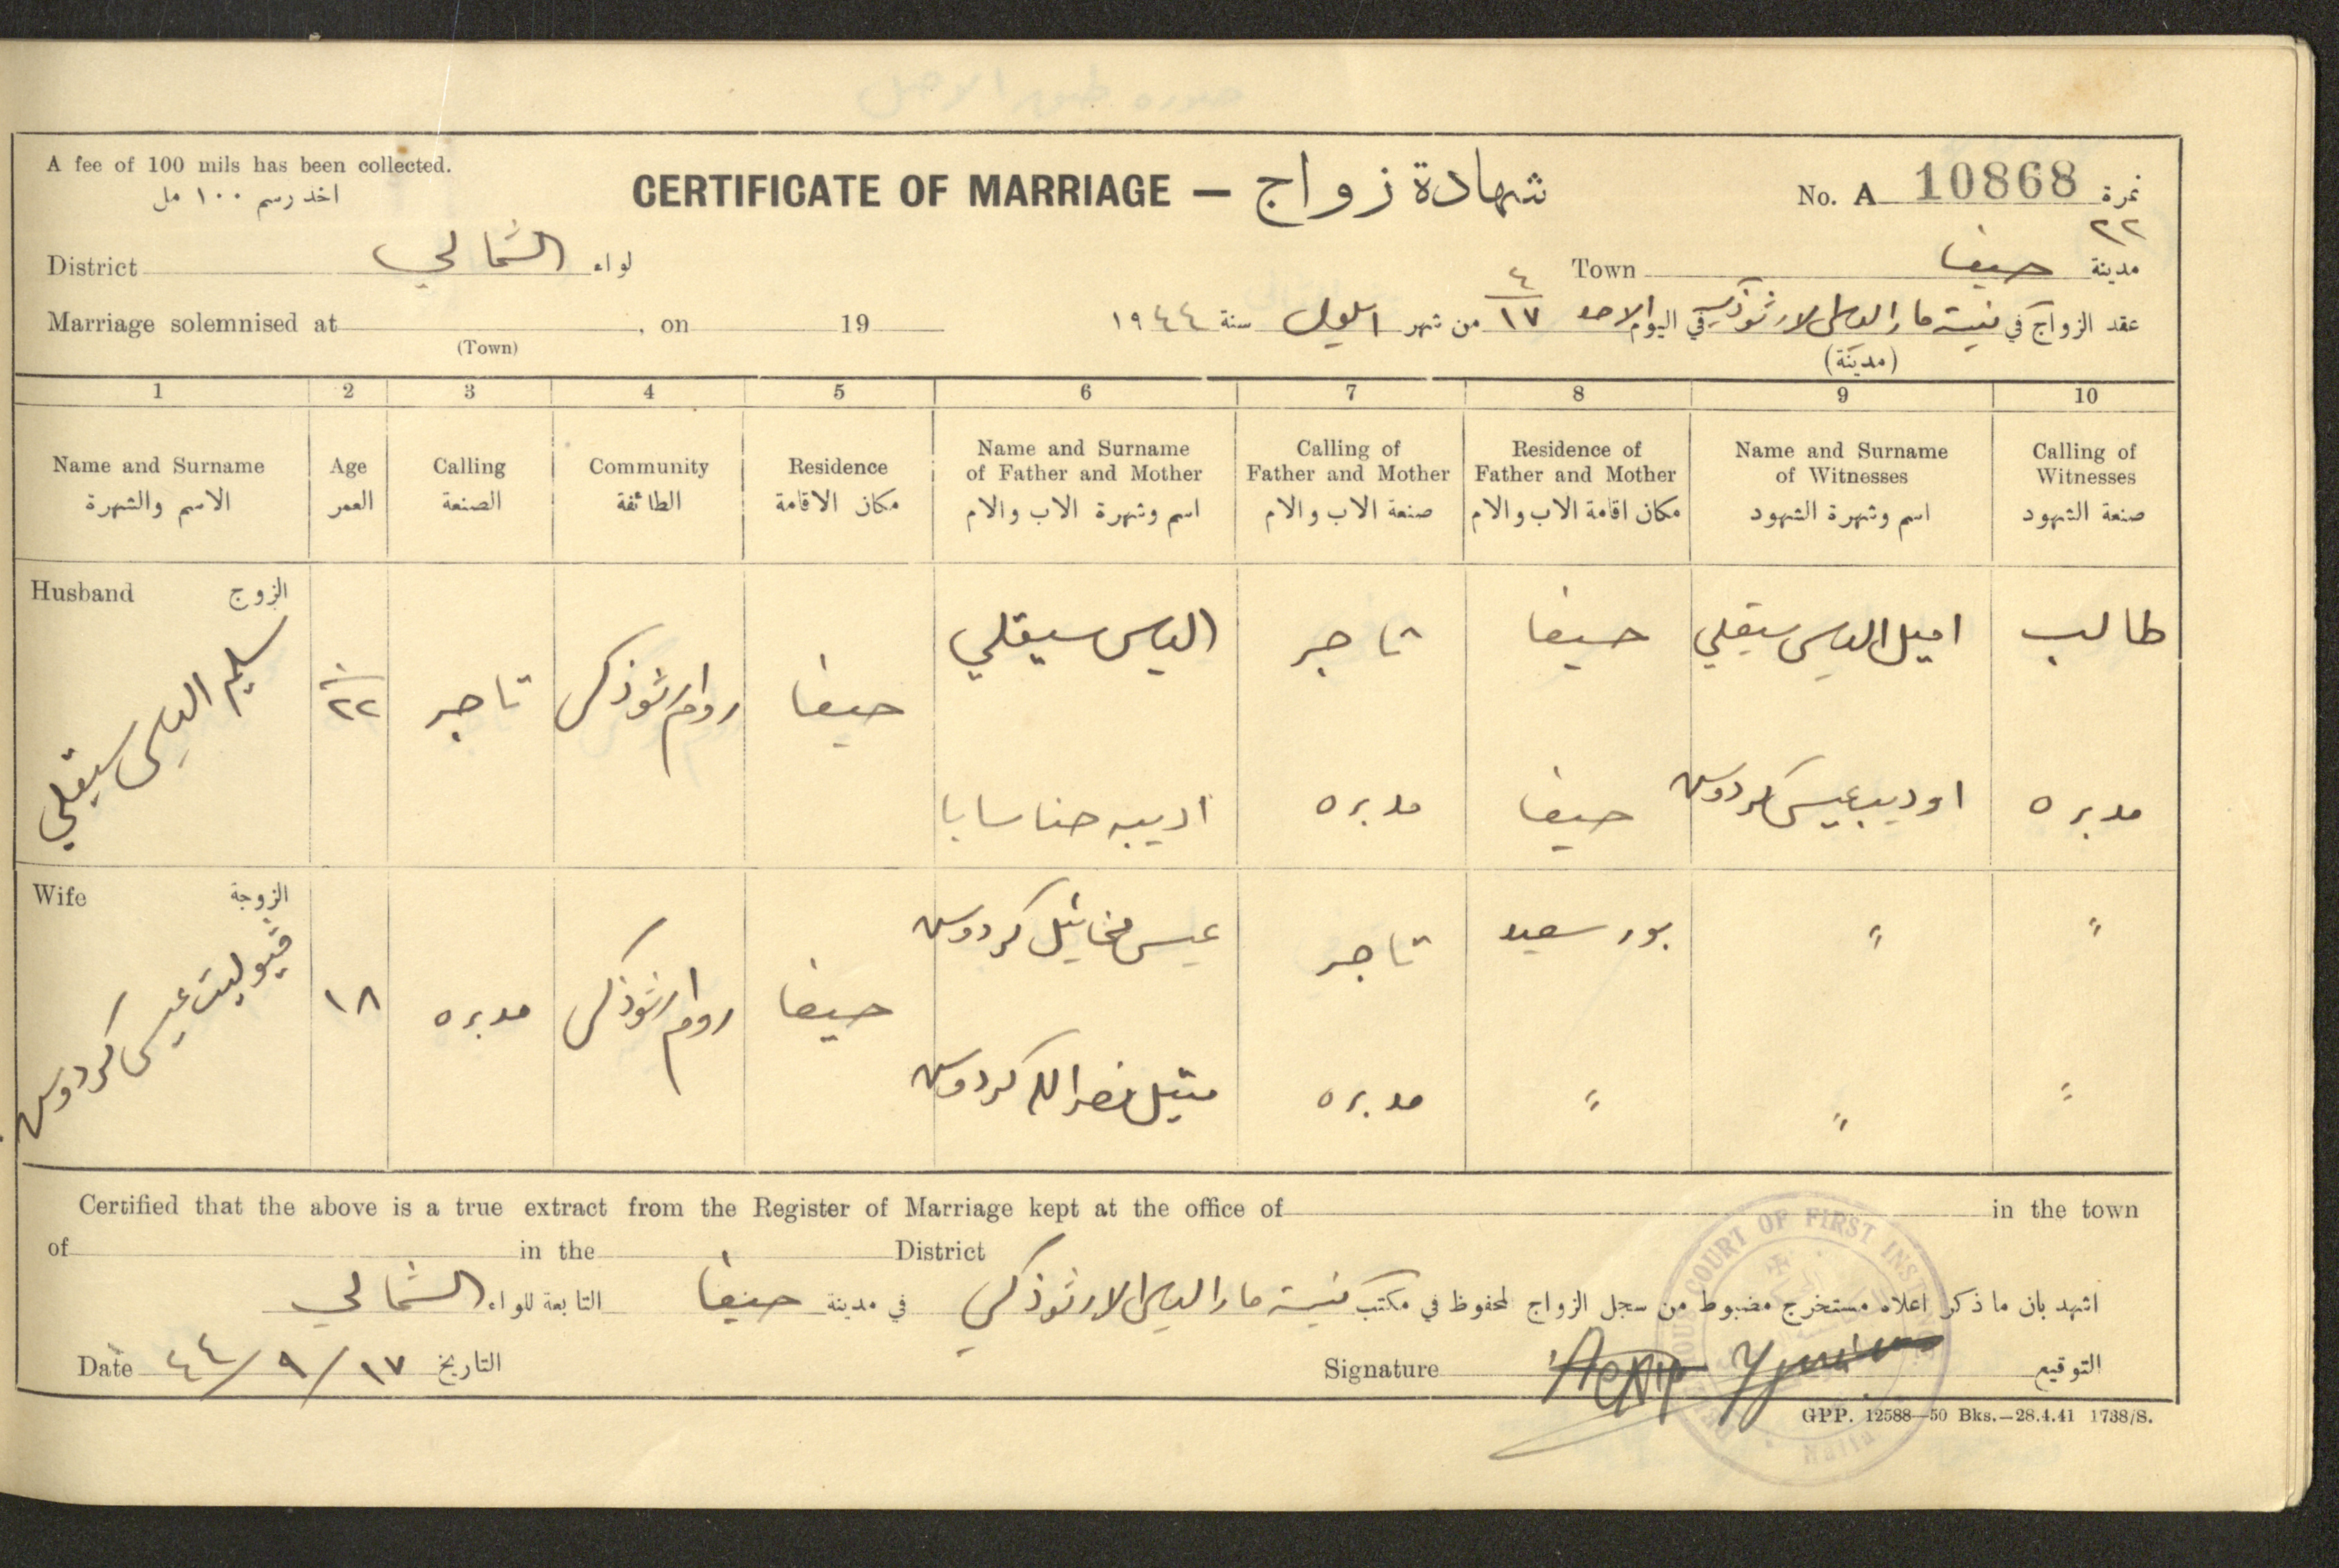 صورة طبق الاصل
A fee of 100 mils has been collected.
اخذ رسم ١٠٠ مل
CERTIFICATE OF MARRIAGE — شهادة زواج
No. A 10868 نمرة
٢٢
District الشمالي لواء
Town حيفا مدينة
Marriage solemnised at , on 19
(Town)
عقد الزواج في كنيسة مار الياس الارثوذكسية في اليوم الاحد ٤/١٧ من شهر ايلول سنة ١٩٤٤
(مدينة)
1 2 3 4 5 6 7 8 9 10
Name and Surname
الاسم والشهرة
Age
العمر
Calling
الصنعة
Community
الطائفة
Residence
مكان الاقامة
Name and Surname
of Father and Mother
اسم وشهرة الاب والام
Calling of
Father and Mother
صنعة الاب والام
Residence of
Father and Mother
مكان اقامة الاب والام
Name and Surname
of Witnesses
اسم وشهرة الشهود
Calling of
Witnesses
صنعة الشهود
Husband الزوج
سليم الياس سيقلي
٢٢
تاجر
روم ارثوذكس
حيفا
الياس سيقلي
تاجر
حيفا
اميل الياس سيقلي
طالب
اديبه حنا سابا
مدبره
حيفا
اوديب عيسى كردوس
مدبره
Wife الزوجة
ڤيوليت عيسى كردوس
١٨
مدبره
روم ارثوذكس
حيفا
عيسى مخائيل كردوس
تاجر
بور سعيد
"
"
متيل نصرالله كردوس
مدبره
"
"
"
Certified that the above is a true extract from the Register of Marriage kept at the office of in the town
of in the District
اشهد بان ما ذكر اعلاه مستخرج مضبوط من سجل الزواج المحفوظ في مكتب كنيسة مار الياس الارثوذكسي في مدينة حيفا التابعة للواء الشمالي
Date ١٧/٩/٤٤ التاريخ
Signature التوقيع
COURT OF FIRST INST
Haifa
GPP. 12588—50 Bks.—28.4.41 1738/S.